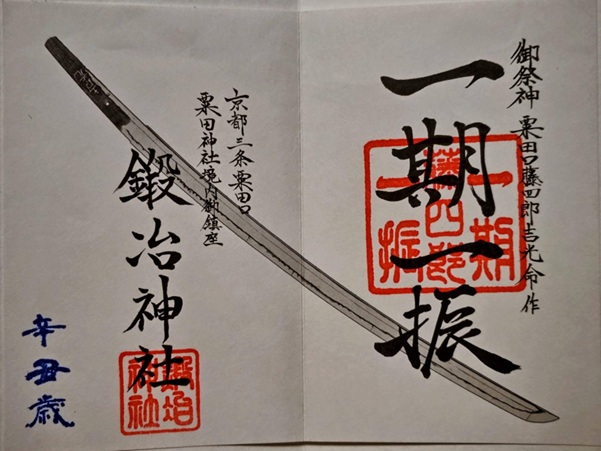 御祭神 粟田口藤四郎吉光命作
一期一振
一期
藤四郎
一振
京都三条粟田口
粟田神社境内御鎮座
鍛冶神社
鍛冶
神社
辛丑歳